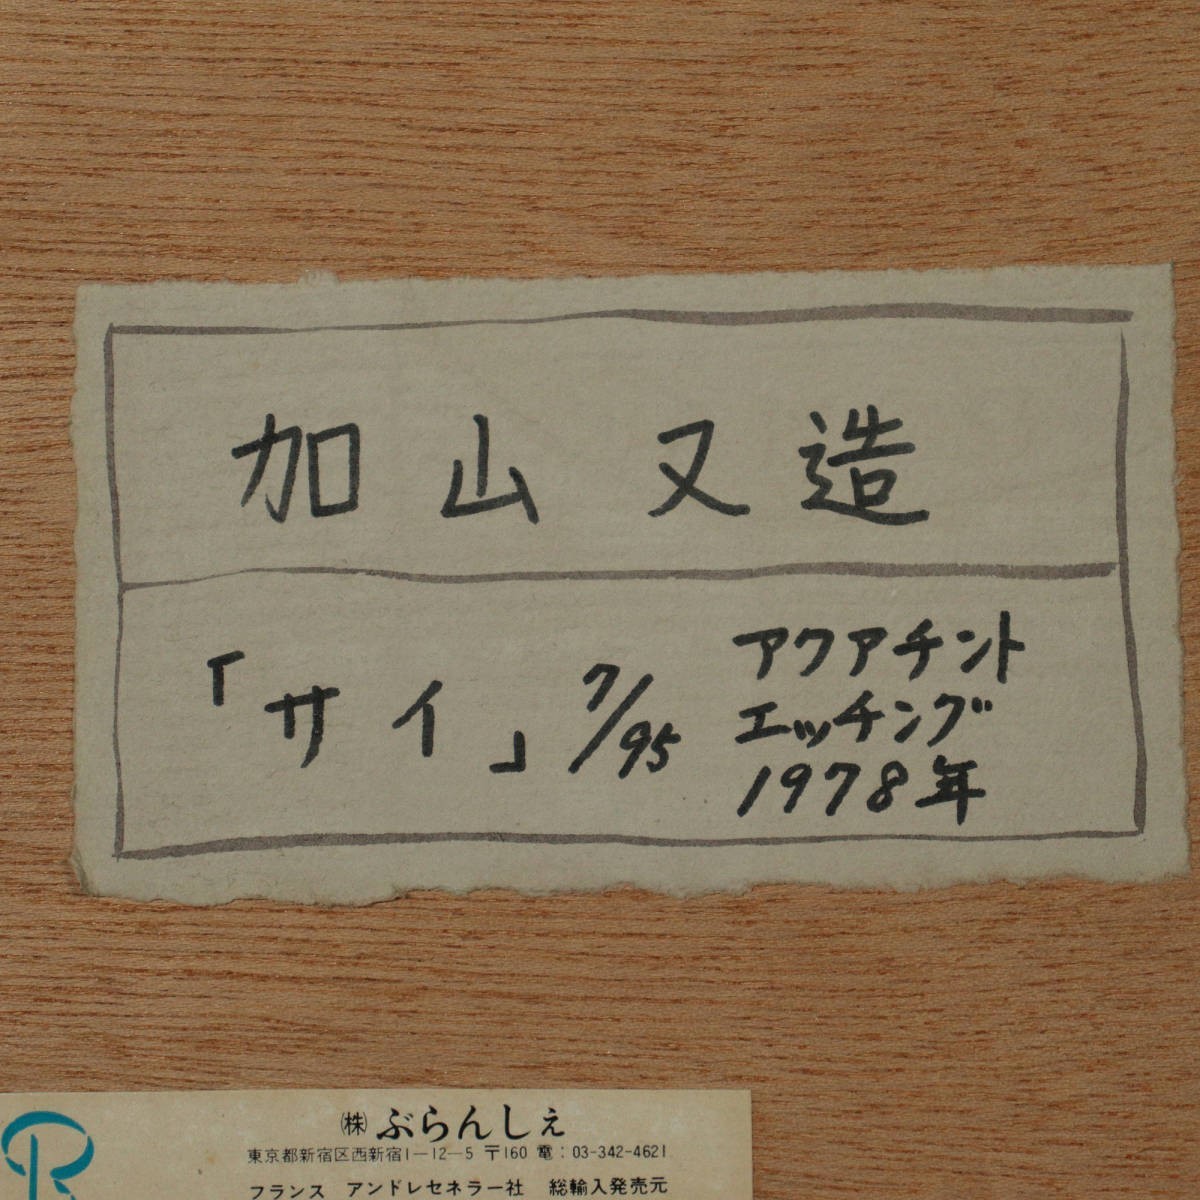 加山又造
「サイ」 7/95
アクアチント
エッチング
1978年
㈱ ぶらんしぇ
東京都新宿区西新宿1—12—5 〒160 電:03-342-4621
フランス アンドレセネラー社 総輸入発売元